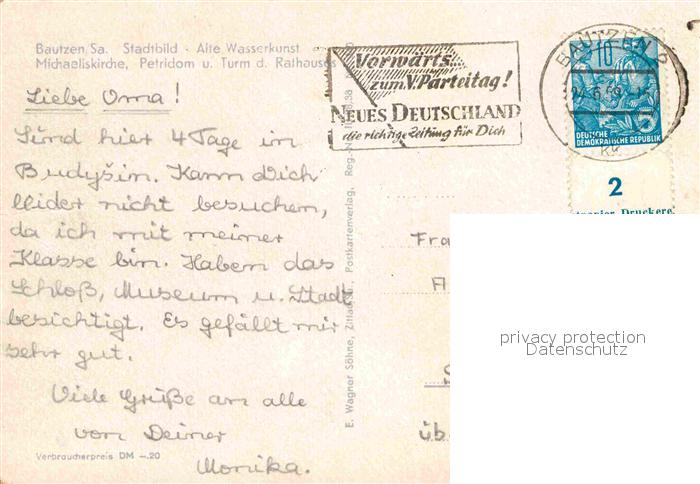 Bautzen/Sa. Stadtbild - Alte Wasserkunst
Michaeliskirche, Petridom u. Turm d. Rathauses
Liebe Oma!
Sind hier 4 Tage in
Budyšin. Kann Dich
leider nicht besuchen,
da ich mit meiner
Klasse bin. Haben das
Schloß, Museum u. Stadt
besichtigt. Es gefällt mir
sehr gut.
Viele Grüße an alle
von Deiner
Monika.
Verbraucherpreis DM -.20
E. Wagner Söhne, Zittau/Sa., Postkartenverlag, Reg.
Vorwärts
zum V. Parteitag!
NEUES DEUTSCHLAND
die richtige Zeitung für Dich
BAUTZEN 2
10
5
DEUTSCHE
DEMOKRATISCHE REPUBLIK
2
Druckere
Fra
üb
privacy protection
Datenschutz